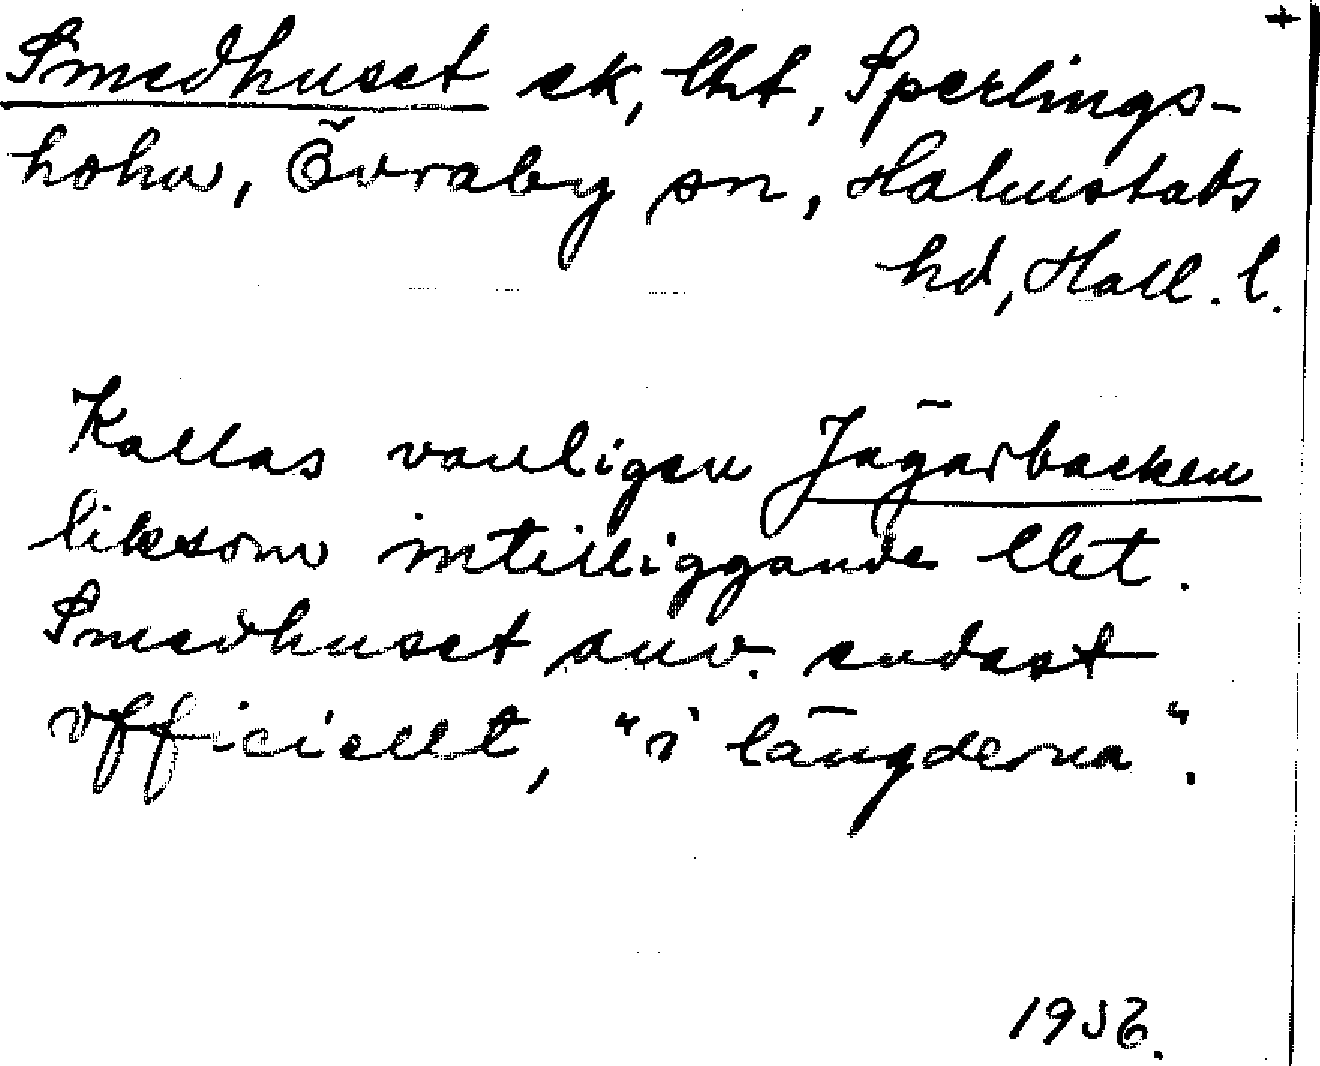 +
Smedhuset ek, lht, Sperlings-
holm, Övraby sn, Halmstads
hd, Hall. l.
Kallas vanligen Jägarbacken
liksom intilliggande llet.
Smedhuset anv. endast
officiellt, "i längderna".
1956.